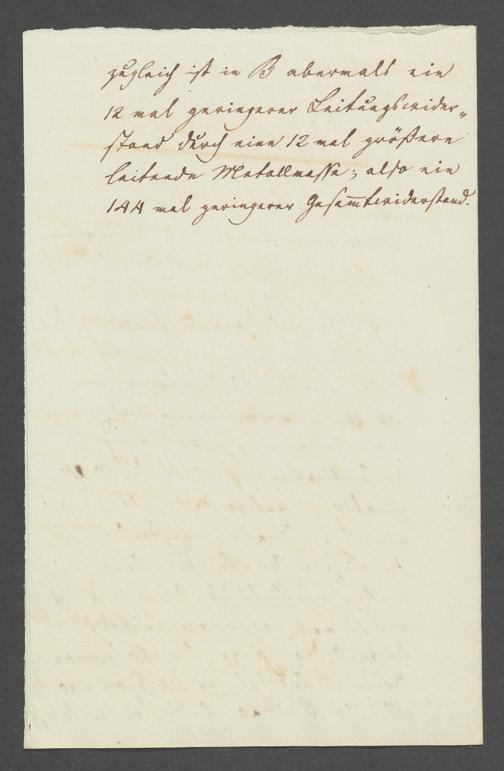 zugleich ist in B abermals ein
12 mal geringerer Leitungswider-
stand durch eine 12 mal größere
leitende Metallmasse; also ein
144 mal geringerer Gesamtwiderstand.